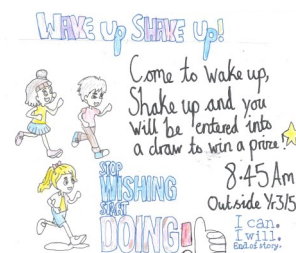 WAKE up SHAKE up!
Come to Wake up,
Shake up and you
will be entered into
a draw to win a prize!
8:45 Am
Outside Yr3/5
STOP
WISHING
START
DOING!
I can.
I will.
End of story.